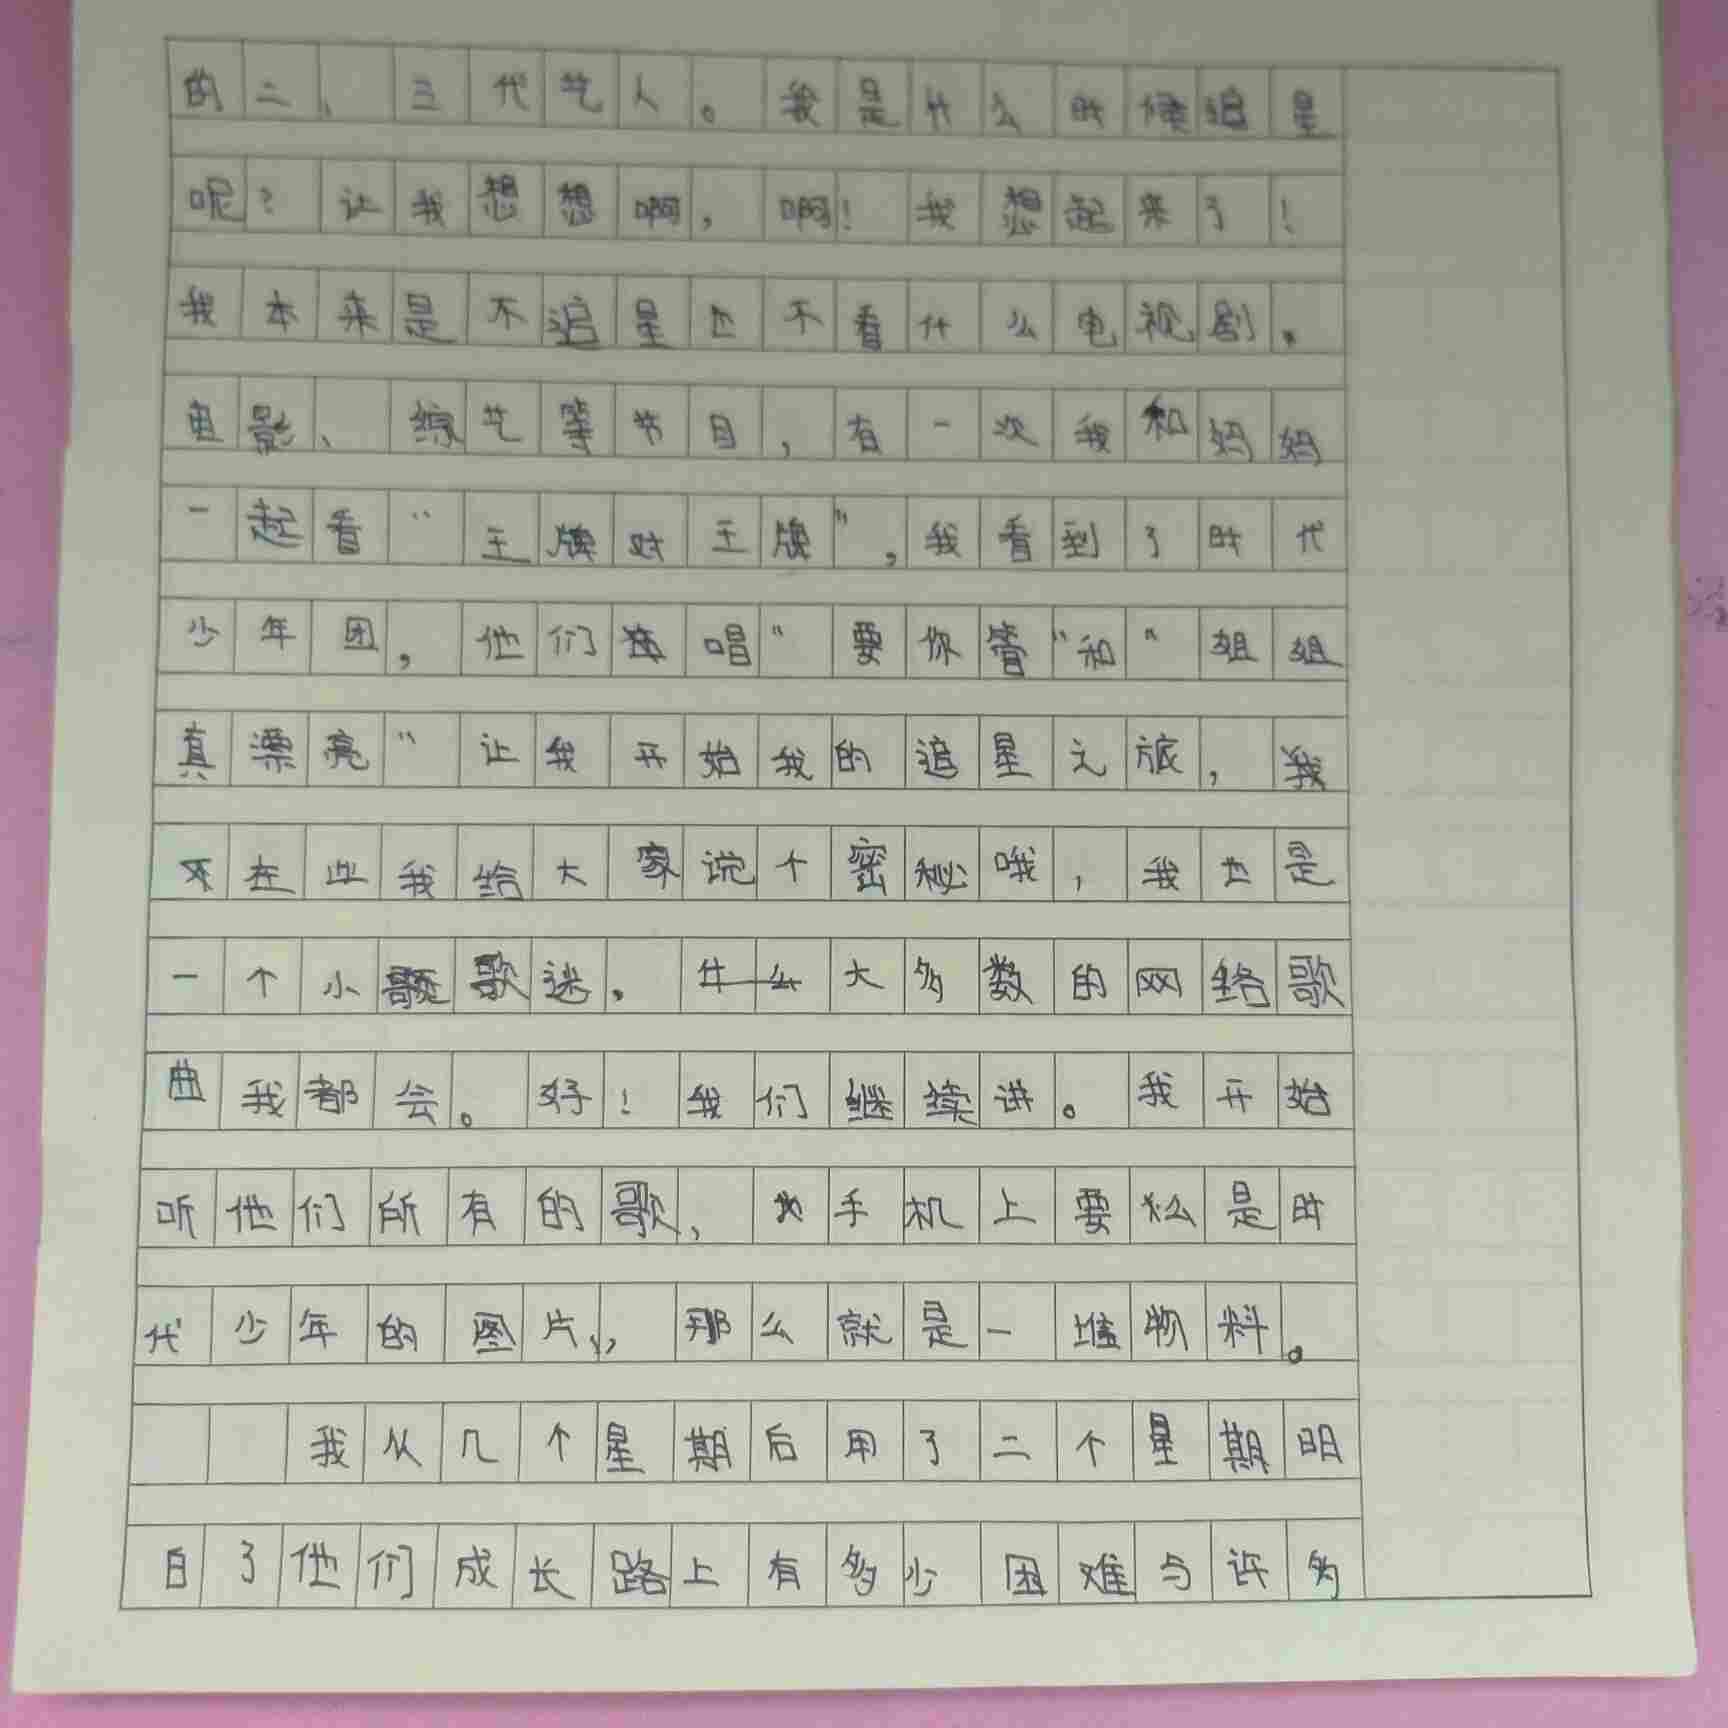 的二、三代艺人。我是什么时候追星
呢?让我想想啊,啊!我想起来了!
我本来是不追星也不看什么电视剧、
电影、综艺等节目,有一次我和妈妈
一起看“王牌对王牌”,我看到了时代
少年团,他们唱“要你管”和“姐姐
真漂亮”让我开始我的追星之旅,我
在此我给大家说个密秘哦,我也是
一个小歌迷。大多数的网络歌
曲我都会。好!我们继续讲。我开始
听他们所有的歌,手机上要么是时
代少年的图片,那么就是一堆物料。
我从几个星期后用了二个星期明
白了他们成长路上有多少困难与许多